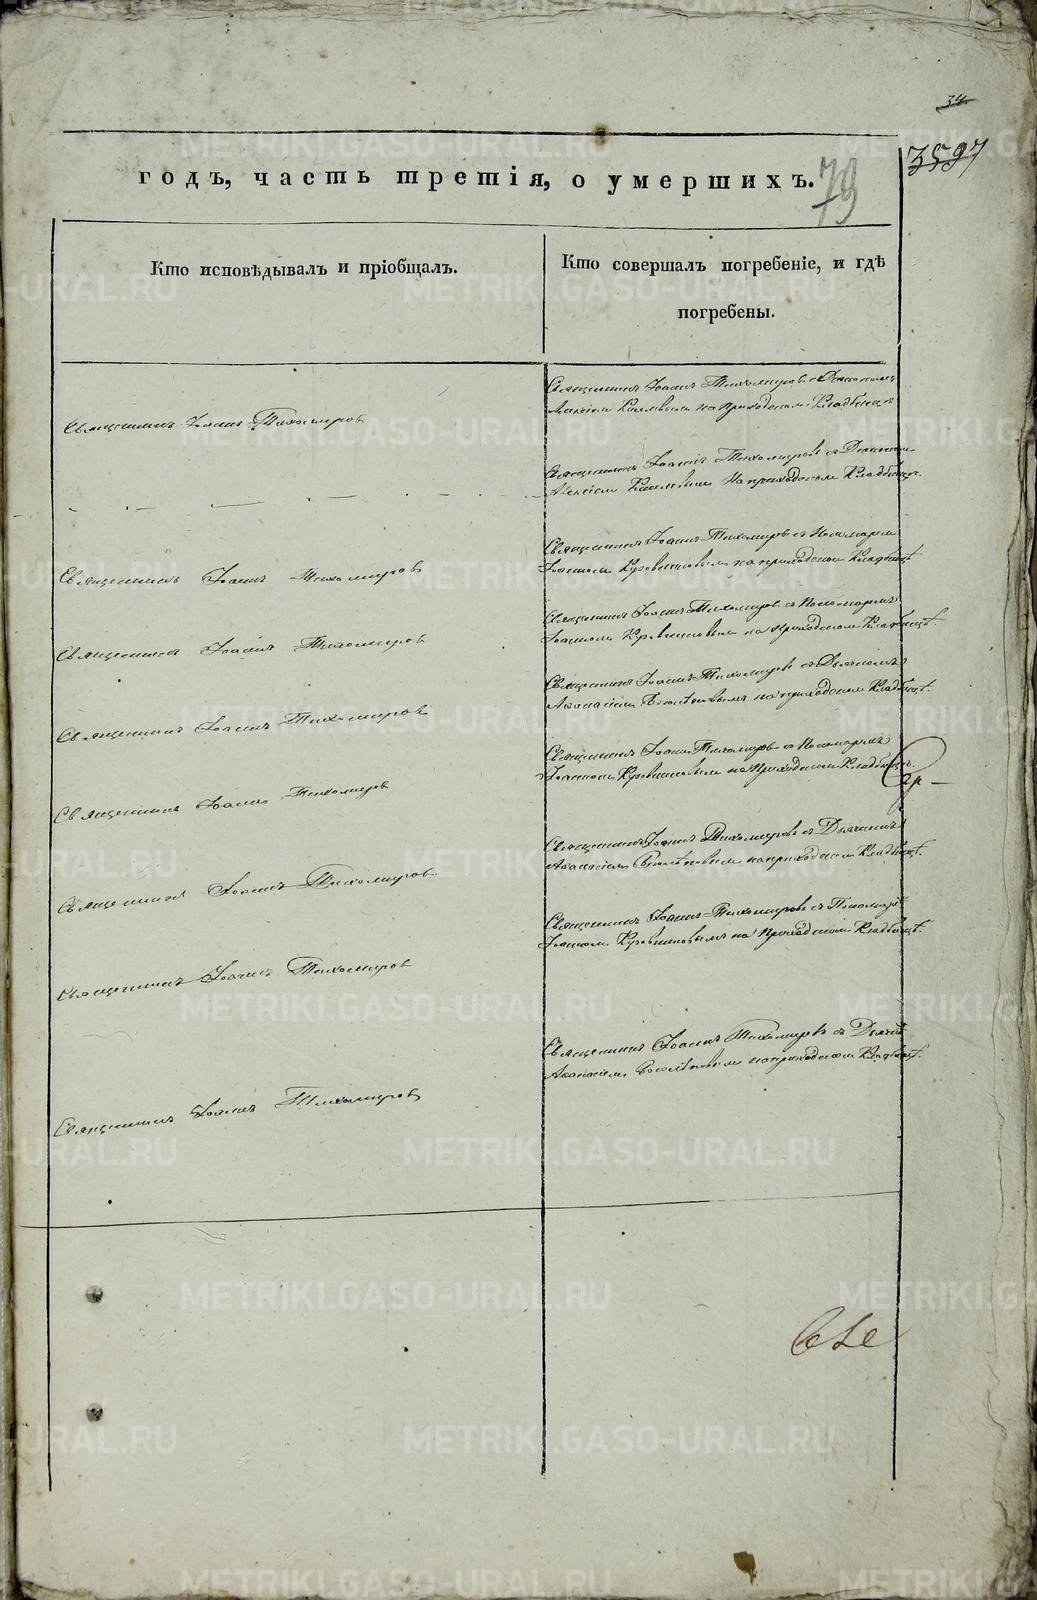 34
3597
79
годъ, часть третія, о умершихъ.
Кто исповѣдывалъ и пріобщалъ.
Кто совершалъ погребеніе, и гдѣ
погребены.
Священникъ Іоаннъ Тихомировъ
Священникъ Іоаннъ Тихомировъ с
на приходскомъ Кладбищѣ
Священникъ Іоаннъ Тихомировъ с
на приходскомъ Кладбищѣ.
Священникъ Іоаннъ Тихомировъ
Священникъ Іоаннъ Тихомировъ с Пономаремъ
Іоанномъ на приходскомъ Кладбищѣ
Священникъ Іоаннъ Тихомировъ
Священникъ Іоаннъ Тихомировъ с Пономаремъ
Іоанномъ на приходскомъ Кладбищѣ.
Священникъ Іоаннъ Тихомировъ
Священникъ Іоаннъ Тихомировъ с Дьячкомъ
на приходскомъ Кладбищѣ.
Священникъ Іоаннъ Тихомировъ
Священникъ Іоаннъ Тихомировъ с Пономаремъ
Іоанномъ на приходскомъ Кладбищѣ.
Священникъ Іоаннъ Тихомировъ
Священникъ Іоаннъ Тихомировъ с Дьячкомъ
на приходскомъ Кладбищѣ.
Священникъ Іоаннъ Тихомировъ
Священникъ Іоаннъ Тихомировъ с
Іоанномъ на приходскомъ Кладбищѣ.
Священникъ Іоаннъ Тихомировъ
Священникъ Іоаннъ Тихомировъ с
на приходскомъ Кладбищѣ.
METRIKI.GASO-URAL.RU